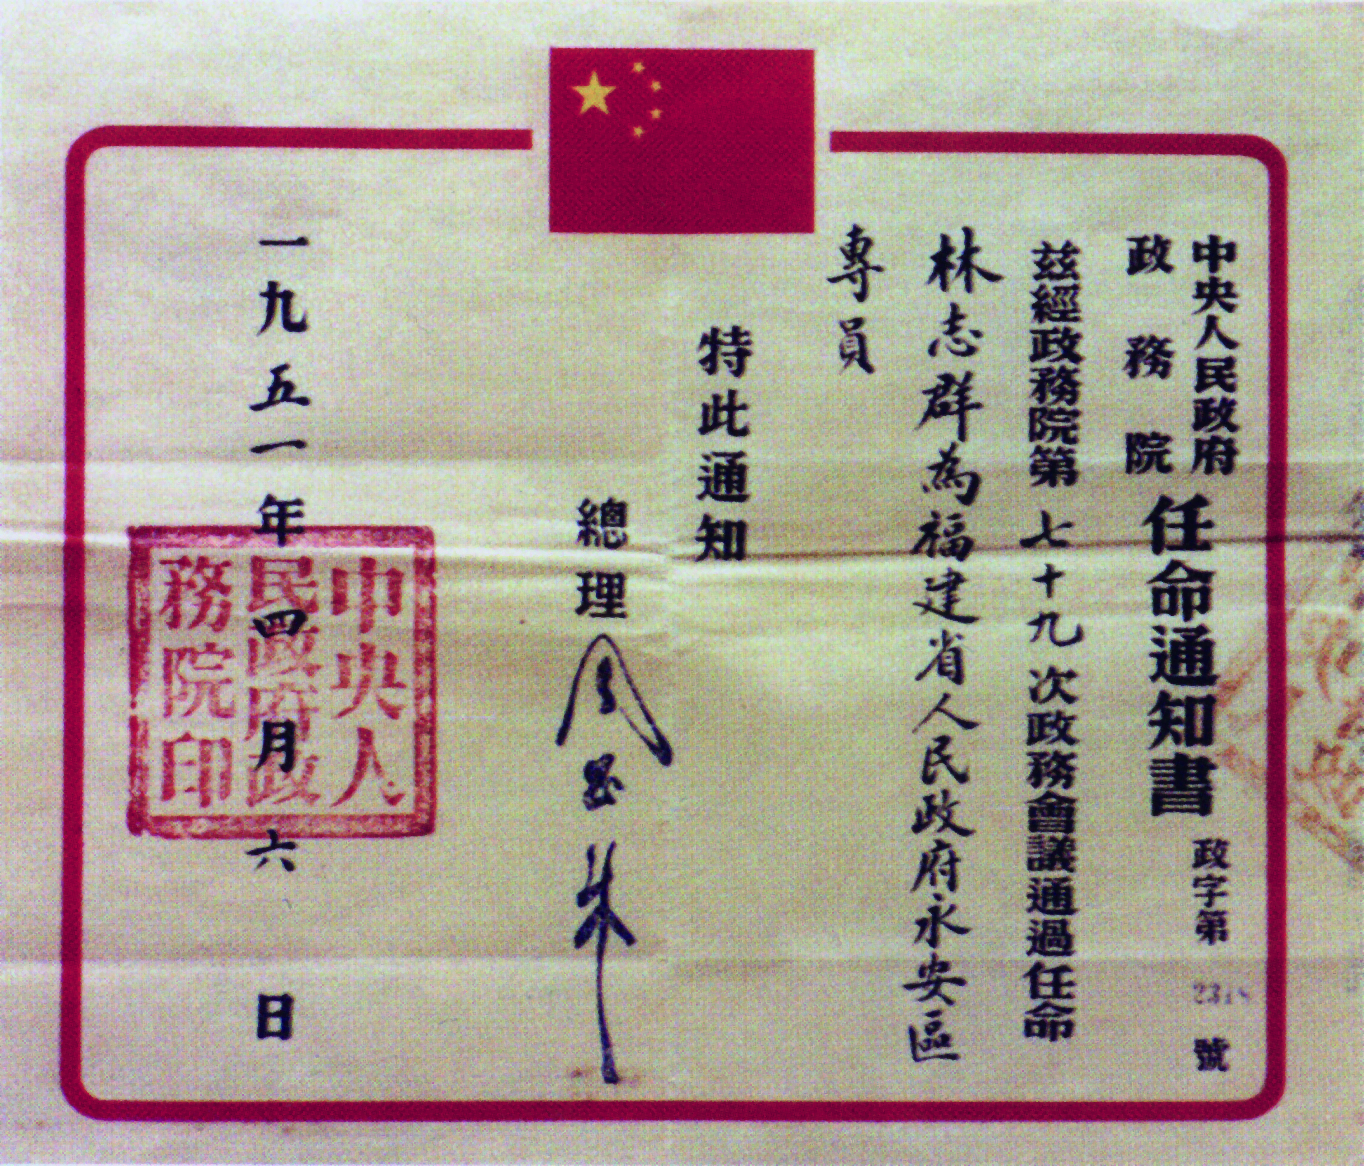 中央人民政府
政務院
任命通知書
政字第
號
茲經政務院第七十九次政務會議通過任命
林志群為福建省人民政府永安區
專員
特此通知
總理
周恩来
一九五一年四月六日
中央人
民政府政
務院印